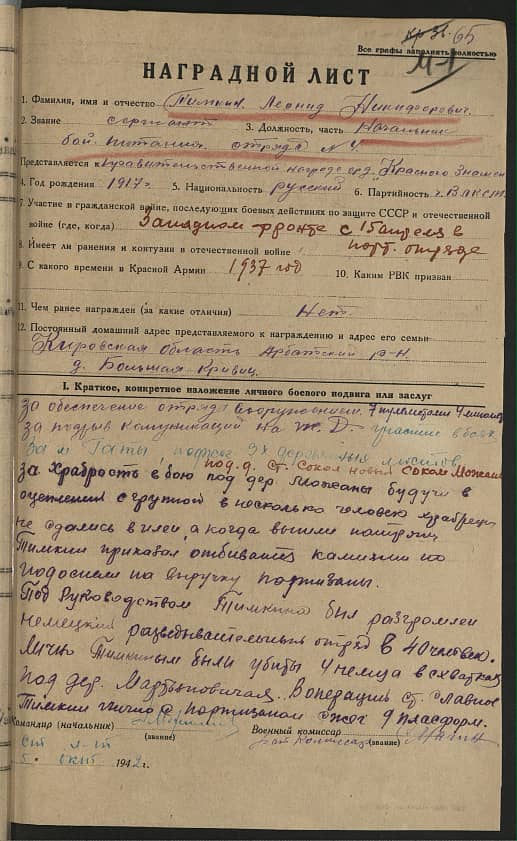 65
Все графы заполнять полностью
М-1
НАГРАДНОЙ ЛИСТ
1. Фамилия, имя и отчество Тимкин Леонид Никифорович.
2. Звание сержант 3. Должность, часть Начальник
бой. питания отряда № 4.
Представляется к правительственной награде орд. "Красного Знамени
4. Год рождения 1917 г. 5. Национальность русский 6. Партийность ч. ВЛКСМ
7. Участие в гражданской войне, последующих боевых действиях по защите СССР и отечественной
войне (где, когда) Западном фронте с 15 апреля в
8. Имеет ли ранения и контузии в отечественной войне парт. отряде
9. С какого времени в Красной Армии 1937 год 10. Каким РВК призван
11. Чем ранее награжден (за какие отличия) Нет.
12. Постоянный домашний адрес представляемого к награждению и адрес его семьи
Кировская область Арбатский р-н
д. Большая
I. Краткое, конкретное изложение личного боевого подвига или заслуг
за обеспечение отряда вооружением 7 пулеметами
за подрыв комуникаций на ж.Д. участие в боях
За м. Гаты, мостов
под. д. ст. Сокол
за храбрость в бою под дер. Можаны будучи в
оцеплении с группой в несколько человек
не сдались в плен, а когда вышли патроны
Тимкин приказал отбиваться камнями но
подоспели на выручку партизаны.
Под Руководством Тимкина был разгромлен
немецкий разведывательный отряд в 40 человек.
Лично Тимкиным были убиты 4 немца в схватках
под дер. Мартьяновичах. В операции ст. Славное
Тимкин лично с партизаном сжог 9 платформ.
Командир (начальник) Военный комиссар
(звание) (звание)
ст л-т
5. окт 1942 г.